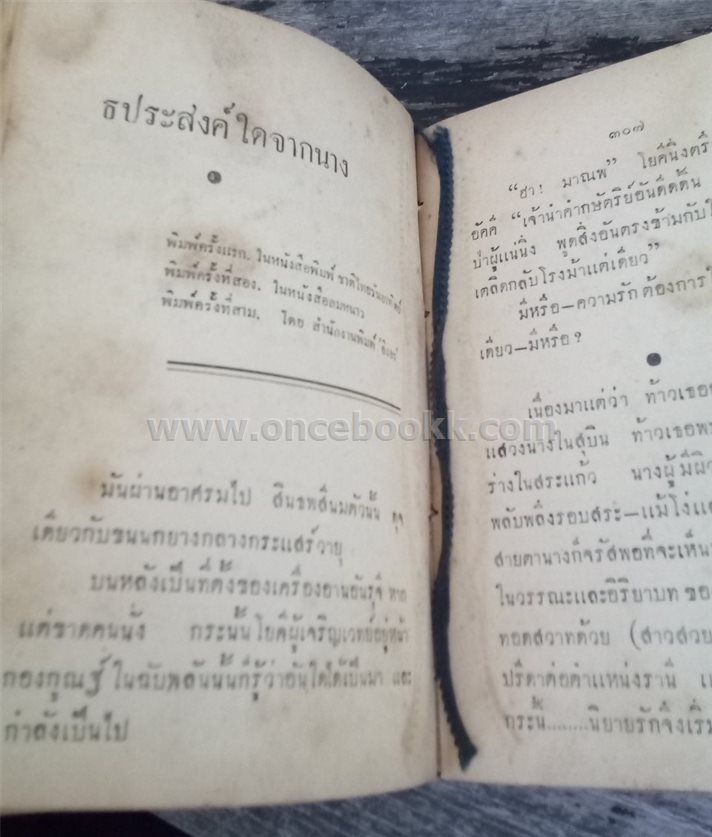 ธประสงค์ใดจากนาง
พิมพ์ครั้งแรก. ในหนังสือพิมพ์ ชาติไทยวันอาทิตย์
พิมพ์ครั้งที่สอง. ในหนังสือลมหนาว
พิมพ์ครั้งที่สาม. โดย สำนักงานพิมพ์
มันผ่านอาศรมไป สินธพสีนมตัวนั้น ดุจ
เดียวกับขนนกยางกลางกระแสร์วายุ
บนหลังเป็นที่ตั้งของเครื่องอานอันรุจี หาก
แต่ขาดคนนั่ง กระนั้นโยคีผู้เจริญเวทย์อยู่หน้า
กองกูณฑ์ ในฉับพลันนั้นก็รู้ว่าอันใดได้เป็นมา และ
กำลังเป็นไป
๓๐๗
"ฮา! มาณพ" โยคีนิ่งตรึ
อัคคี "เจ้านำคำกษัตริย์อันดึดัน
ป่าผู้แน่นิ่ง พูดสิ่งอันตรงข้ามกับใ
เตลิดกลับโรงม้าแต่เดียว"
มีหรือ—ความรักต้องการใ
เดียว—มีหรือ?
เนื่องมาแต่ว่า ท้าวเธอ
แสวงนางในสุบิน ท้าวเธอพ
ร่างในสระแก้ว นางผู้มีผิ
พลับพลึงรอบสระ—แม้โง่แ
สายตานางก็จรัสพอที่จะเห็น
ในวรรณะและอิริยาบท ขอ
ทอดสวาทด้วย (สาวสวย
ปรีดาต่อตำแหน่งรานี แ
กระนั้........นิยายรักจึงเริ่ม
www.oncebookk.com